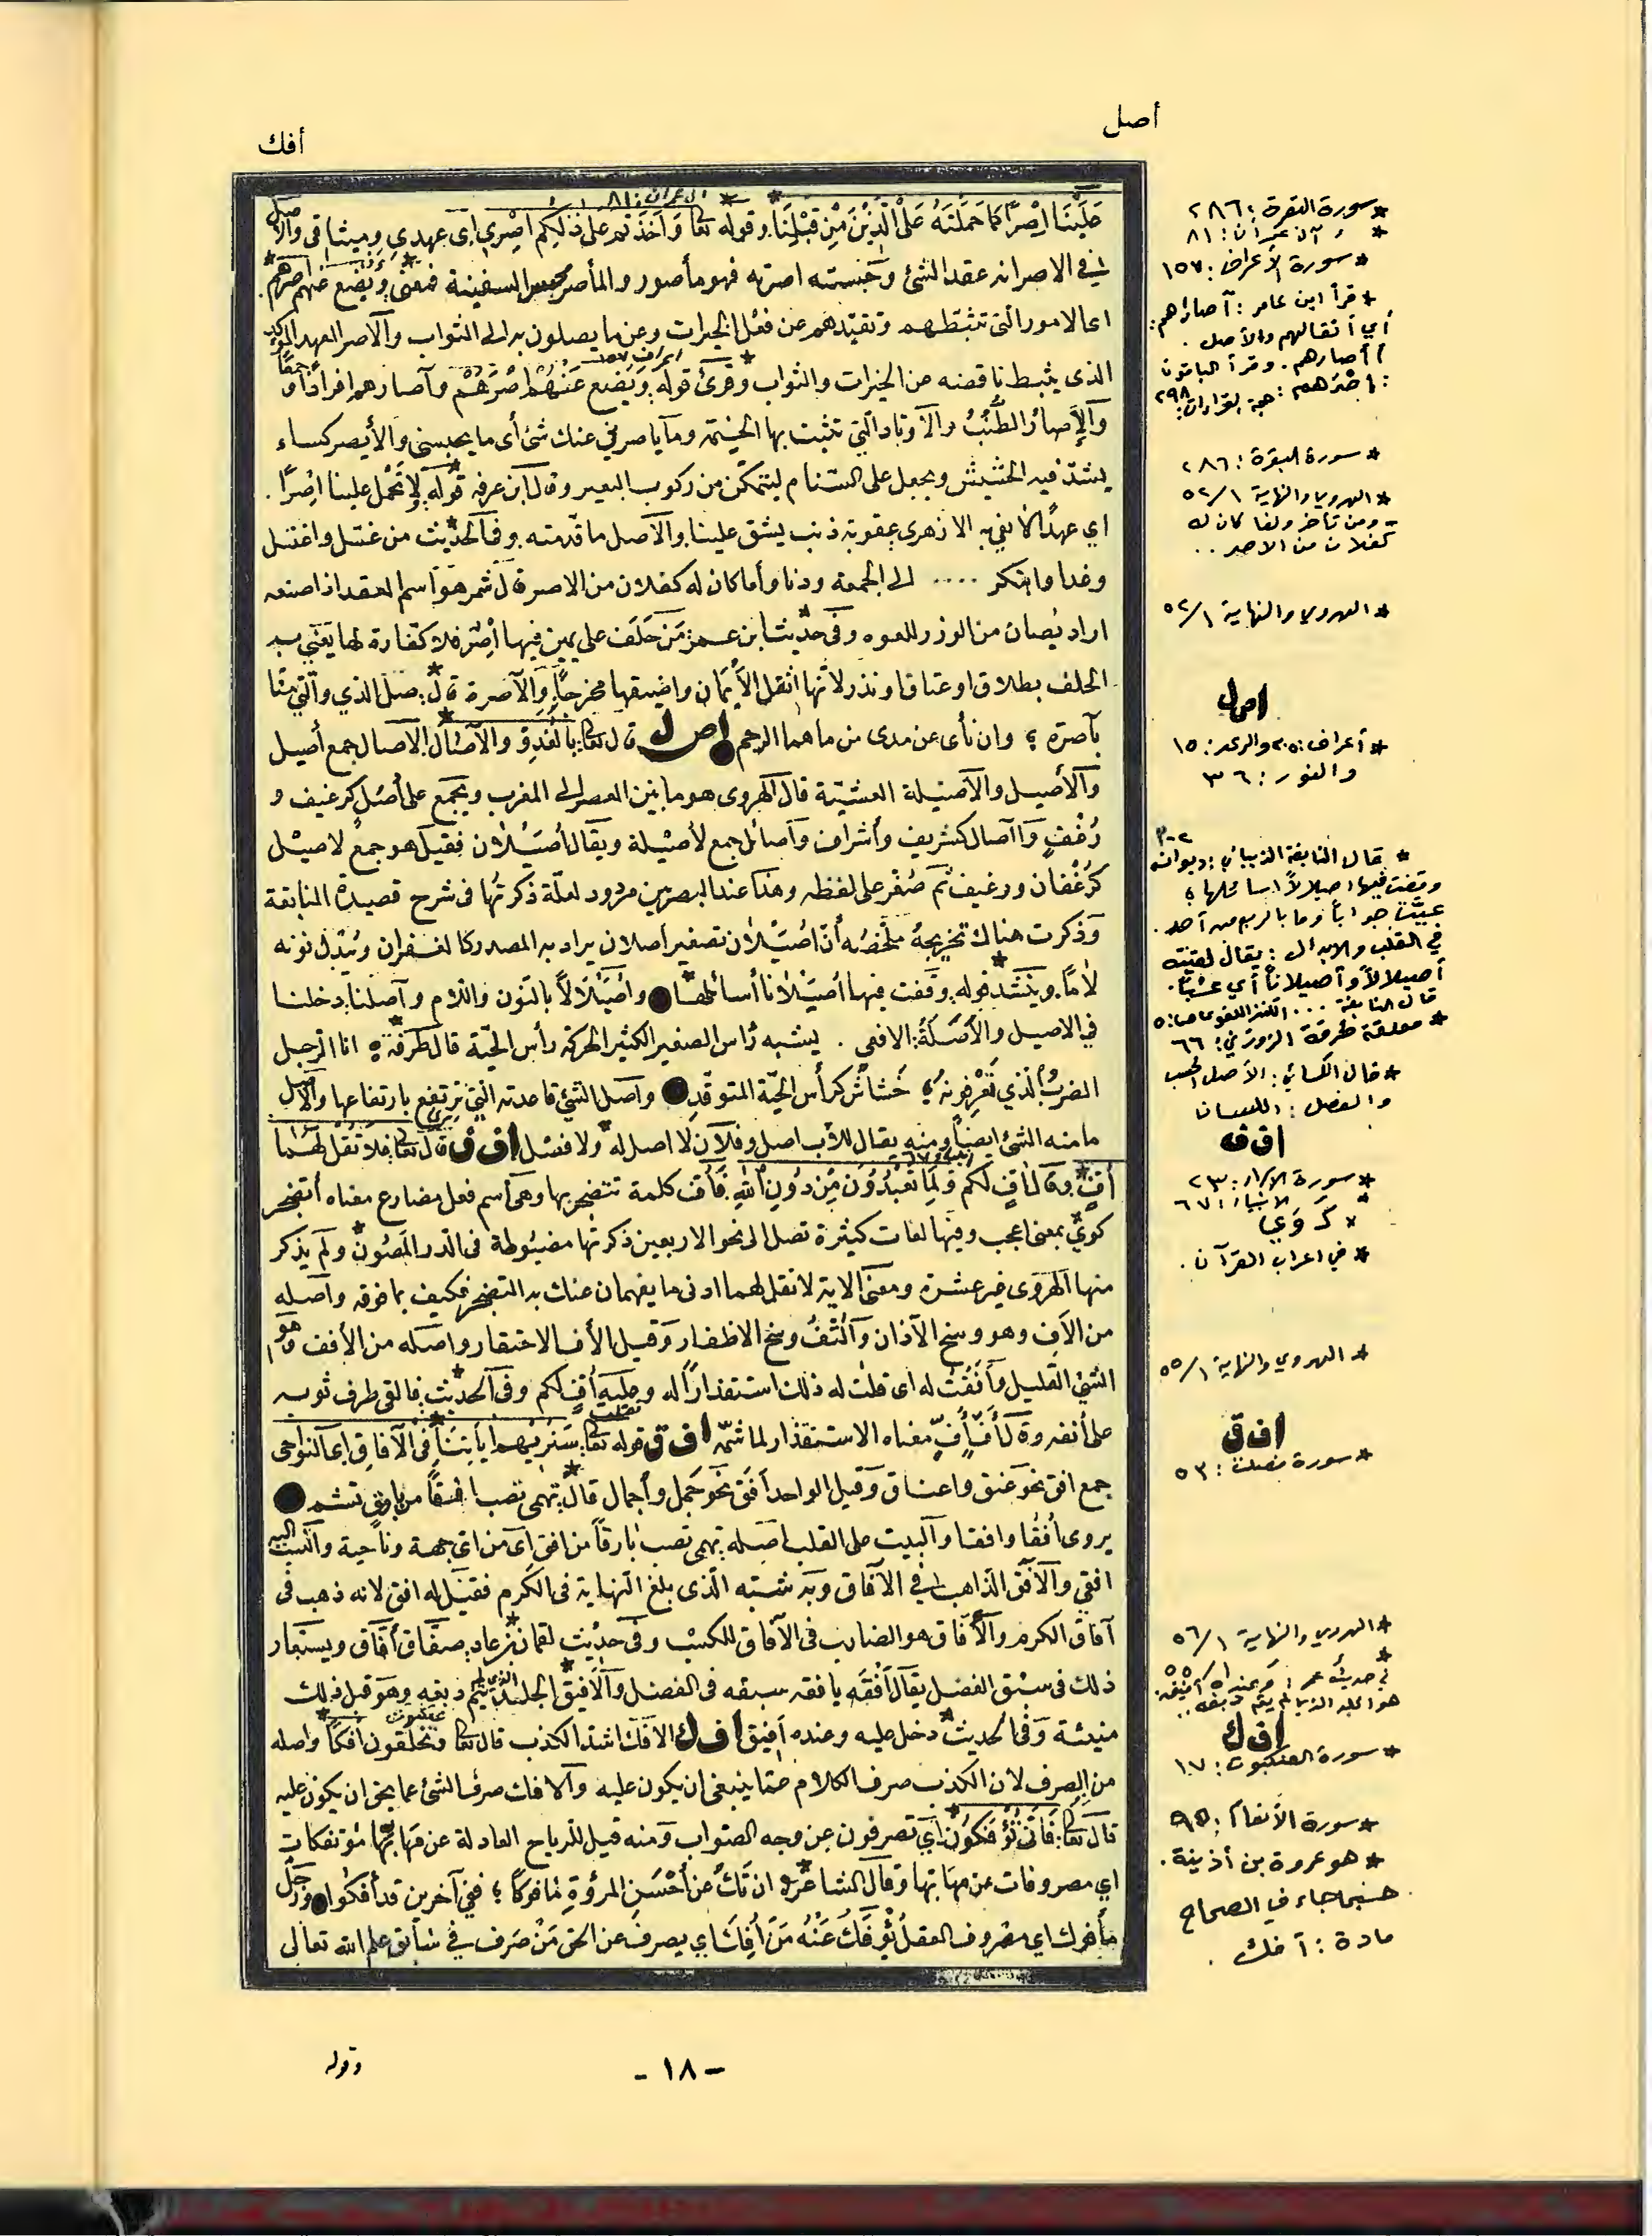 أصل
أفك
علينا إصرًا كما حملته على الذين من قبلنا. وقوله تعا وأخذتم على ذلكم إصري أي عهدي وميثاقي والأصل
في الاصر انه عقد الشئ وحبسته اصرته فهو مأصور والمأصر محبس السفينة فمعنى ويضع عنهم اصرهم.
اى الامور التى تثبطهم وتقيّدهم عن فعل الخيرات وعن ما يصلون به الى الثواب والآصر العهد المؤكد
الذى يثبط ناقضه عن الخيرات والثواب وقرئ قوله ويضع عَنْهُم اصْرَهُمْ وآصارهم افرادًا و جمعًا
والإصارُ الطُّنُبُ والأوتاد التي تثبت بها الخيمة وما يأصرني عنك شئ أى ما يحبسنى والأيصر كساء
يشدّ فيه الحشيش ويجعل على السنام ليتمكّن من ركوب البعير وقال ابن عرفه قوله ولا تحمل علينا إصْرًا.
اي عهدًا لا نفي به الازهرى عقوبة ذنب يشق علينا والأصل ما قدمته. وفى الحديث من غسّل واغتسل
وغدا وابتكر .... الى الجمعة ودنا وأما كان له كفلان من الاصر قال شمر هو اسم العقد اذا ضيعه
اراد نصيبان من الوزر للغوه وفى حديث ابن عمر مَنْ حَلَفَ على يمين فيها اصْر فلا كفارة لها يعني به
الحلف بطلاق او عتاق او نذر لأنها اثقل الأَيْمَان واضيقها مخرجًا. والآصرة قال: صل الذي والتي متّا
بآصرة ؛ وان نأى عن مدى من ماهما الرحم اص ل قال تعا: بالغدوّ والآصال الآصال جمع أصيل
والأصيل والأصيلة العشيّة قال الهروى هو ما بين العصر الى المغرب ويجمع على أصل كرغيف و
رُغُفٍ وآصال كشريف وأشراف وأصائل جمع لأصيلة ويقال أصيلان فقيل هو جمع لاصيل
كرُغْفان ورغيف ثم صُغّر على لفظه وهذا عند البصريين مردود لعلّة ذكرتُها فى شرح قصيدة النابغة
وذكرت هناك تخريجهُ ملخّصُه أنّ اصُيْلان تصغير اصلان يراد به المصدر كالغفران ويُبْدل نونه
لامًا. وينشد قوله. وقفت فيها أصَيْلانا أسائلها واصَيْلالاً بالنون واللام وآصلنا. دخلنا
في الاصيل والأَصَلَةُ: الافعى. يشبه رأس الصغير الكثير الحركة رأس الحيّة قال طرفة ؛ انا الرجل
الضرْبُ الّذي تَعْرِفونهُ ؛ خَشاش كرأس الحيّة المتوقّدِ واصل الشئ قاعدته التي ترتفع بارتفاعها والأصل
ما منه الشئ ايضًا ومنه يقال للأب اصل وفلان لا اصل له ولا فصل اف ف قال تعا: فلا تقل لهما
أفٍّ. وقال أفٍّ لكم ولِمَا تعْبُدُون مِن دُونِ الله. فأفّ كلمة تتضجر بها وهى اسم فعل مضارع معناه أتضجر
كويْ بمعنى اعجب وفيها لغات كثيرة تصل الى نحو الاربعين ذكرتُها مضبُوطة فى الدر المصُون ولم يذكر
منها الهروى غير عشرة ومعنى الاية لا تقل لهما ادنى ما يفهمان عنك به التضجر فكيف بما فوقه واصله
من الأفِ وهو وسخ الآذان والتُّفُ وسخ الاظفار وقيل الأف الاحتقار واصله من الأفف وهو
الشئ القليل وأَفّفْتُ له اى قلت له ذلك استقذارًا له وعليه أفٍّ لكم وفى الحديث فألقى طرف ثوبه
على أنفه وقال أفّ أُفّ معناه الاستقذار لما شمّه اف ق قوله تعا: سنُريهم اياتنا في الآفاق اى النواحى
جمع افق نحو عنق واعناق وقيل الواحد أفَق نحو جَمل وأجمال قال: تهمى تصب افقًا من بارق تشم
يروى اُفُقا وافقا والبيت على القلب اصله: تهمى تصب بارقًا من افق أى من اى جهة وناحية والنسب اليه
افقي والآفق الذاهب فى الآفاق وبه شبّه الّذى بلغ النهاية فى الكرم فقيل له افق لانه ذهب فى
آفاق الكرم والأفّاق هو الضارب فى الآفاق للكسب وفى حديث لقمان بن عاد. صفّاق أفّاق ويستعار
ذلك فى سبْق الفضل يقال أفَقَه يافقه سبقه فى الفضل والأفيق الجلد الذي لم يتم دبغه وهو قبل ذلك
منيئة وفى الحديث دخل عليه وعنده أفيق اف ك الافك اشد الكذب قال تعا وتخلقون افكًا واصله
من الصرف لان الكذب صرف الكلام عما ينبغى ان يكون عليه والافك صرف الشئ عما يحق ان يكون عليه
قال تعا: فأنّى تُؤْفكون أي تصرفون عن وجه الصواب ومنه قيل للرياح العادلة عن مهابّها مؤتفكات
اي مصروفات عن مهابّها وقال الشاعر ؛ ان تكُ عن أحْسَنِ المرؤةِ مأفوكًا ؛ ففي آخرين قد أُفكوا ورجل
مأفوك اي مصْروف العقل يُؤْفَكُ عَنْهُ مَنْ اُفِكَ اي يصرف عن الحق مَنْ صَرف في سابق علم الله تعالى
* سورة البقرة : ٢٨٦
* ، آل عمران : ٨١
* سورة الأعراف : ١٥٧
* قرأ ابن عامر : آصارهم :
أي أثقالهم والأصل .
أأصارهم . وقرأ الباقون
: إصْرَهم : حجة القراءات: ٢٩٨
* سورة البقرة : ٢٨٦
* الهروي والنهاية ٥٢/١
- ومن تأخر ولغا كان له
كفلان من الاصر ..
* الهروي والنهاية ٥٢/١
اص ل
* أعراف : ٢٠٥ والرعد : ١٥
والنور : ٣٦
* قال النابغة الذبياني : ديوانه
وقفت فيها اصيلالاً اسائلها ؛
عيّت جواباً وما بالربع من أحد .
في القلب والابدال : يقال لقيته
أصيلالاً وأصيلاناً أي عشيّاً .
قال النابغة ... الكنز اللغوي ص: ٥
* معلقة طرفة الزوزني : ٦٦
* قال الكسائي : الأصل الحسب
والفصل : اللسان
اف ف
* سورة الإسراء : ٢٣
* الانبياء : ٦٧
* كَوَي
* في اعراب القرآن .
* الهروي والنهاية ٥٥/١
اف ق
* سورة فصلت : ٥٣
* الهروي والنهاية ٥٦/١
*
في حديث عمر وعنده أفيق.
هو الجلد الذي لم يتم دبغه ..
اف ك
* سورة العنكبوت : ١٧
* سورة الأنعام : ٩٥
* هو عروة بن أذينة .
حسبما جاء في الصحاح
مادة : أفك .
- ١٨ -
وقوله